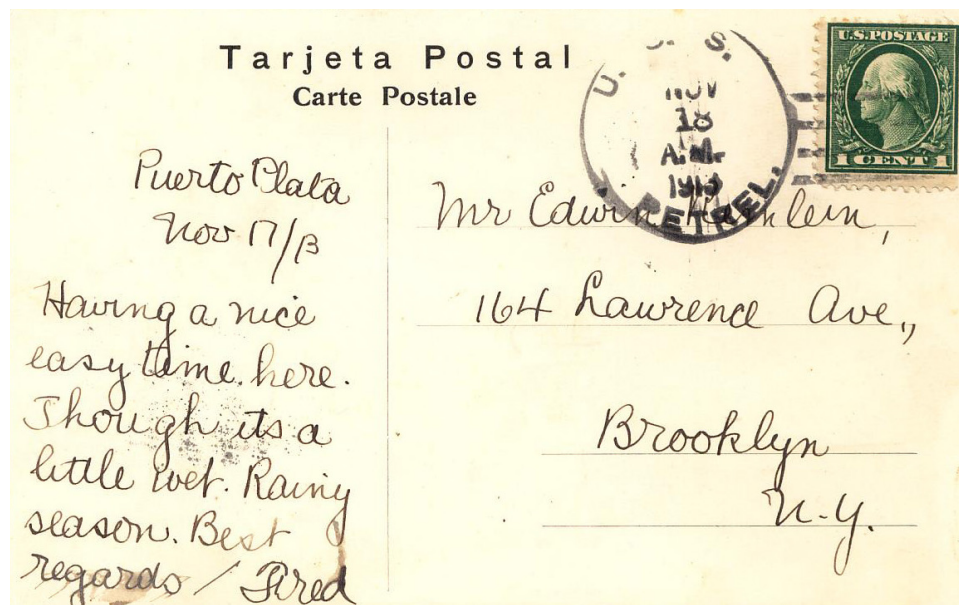 Tarjeta Postal
Carte Postale
U. S. S.
NOV
18
A.M.
1913
PETREL.
U.S.POSTAGE
1 CENT 1
Puerto Plata
Nov 17/13
Having a nice
easy time here.
Though its a
little wet. Rainy
season. Best
regards / Fred
Mr Edwin
164 Lawrence Ave.,
Brooklyn
N.Y.